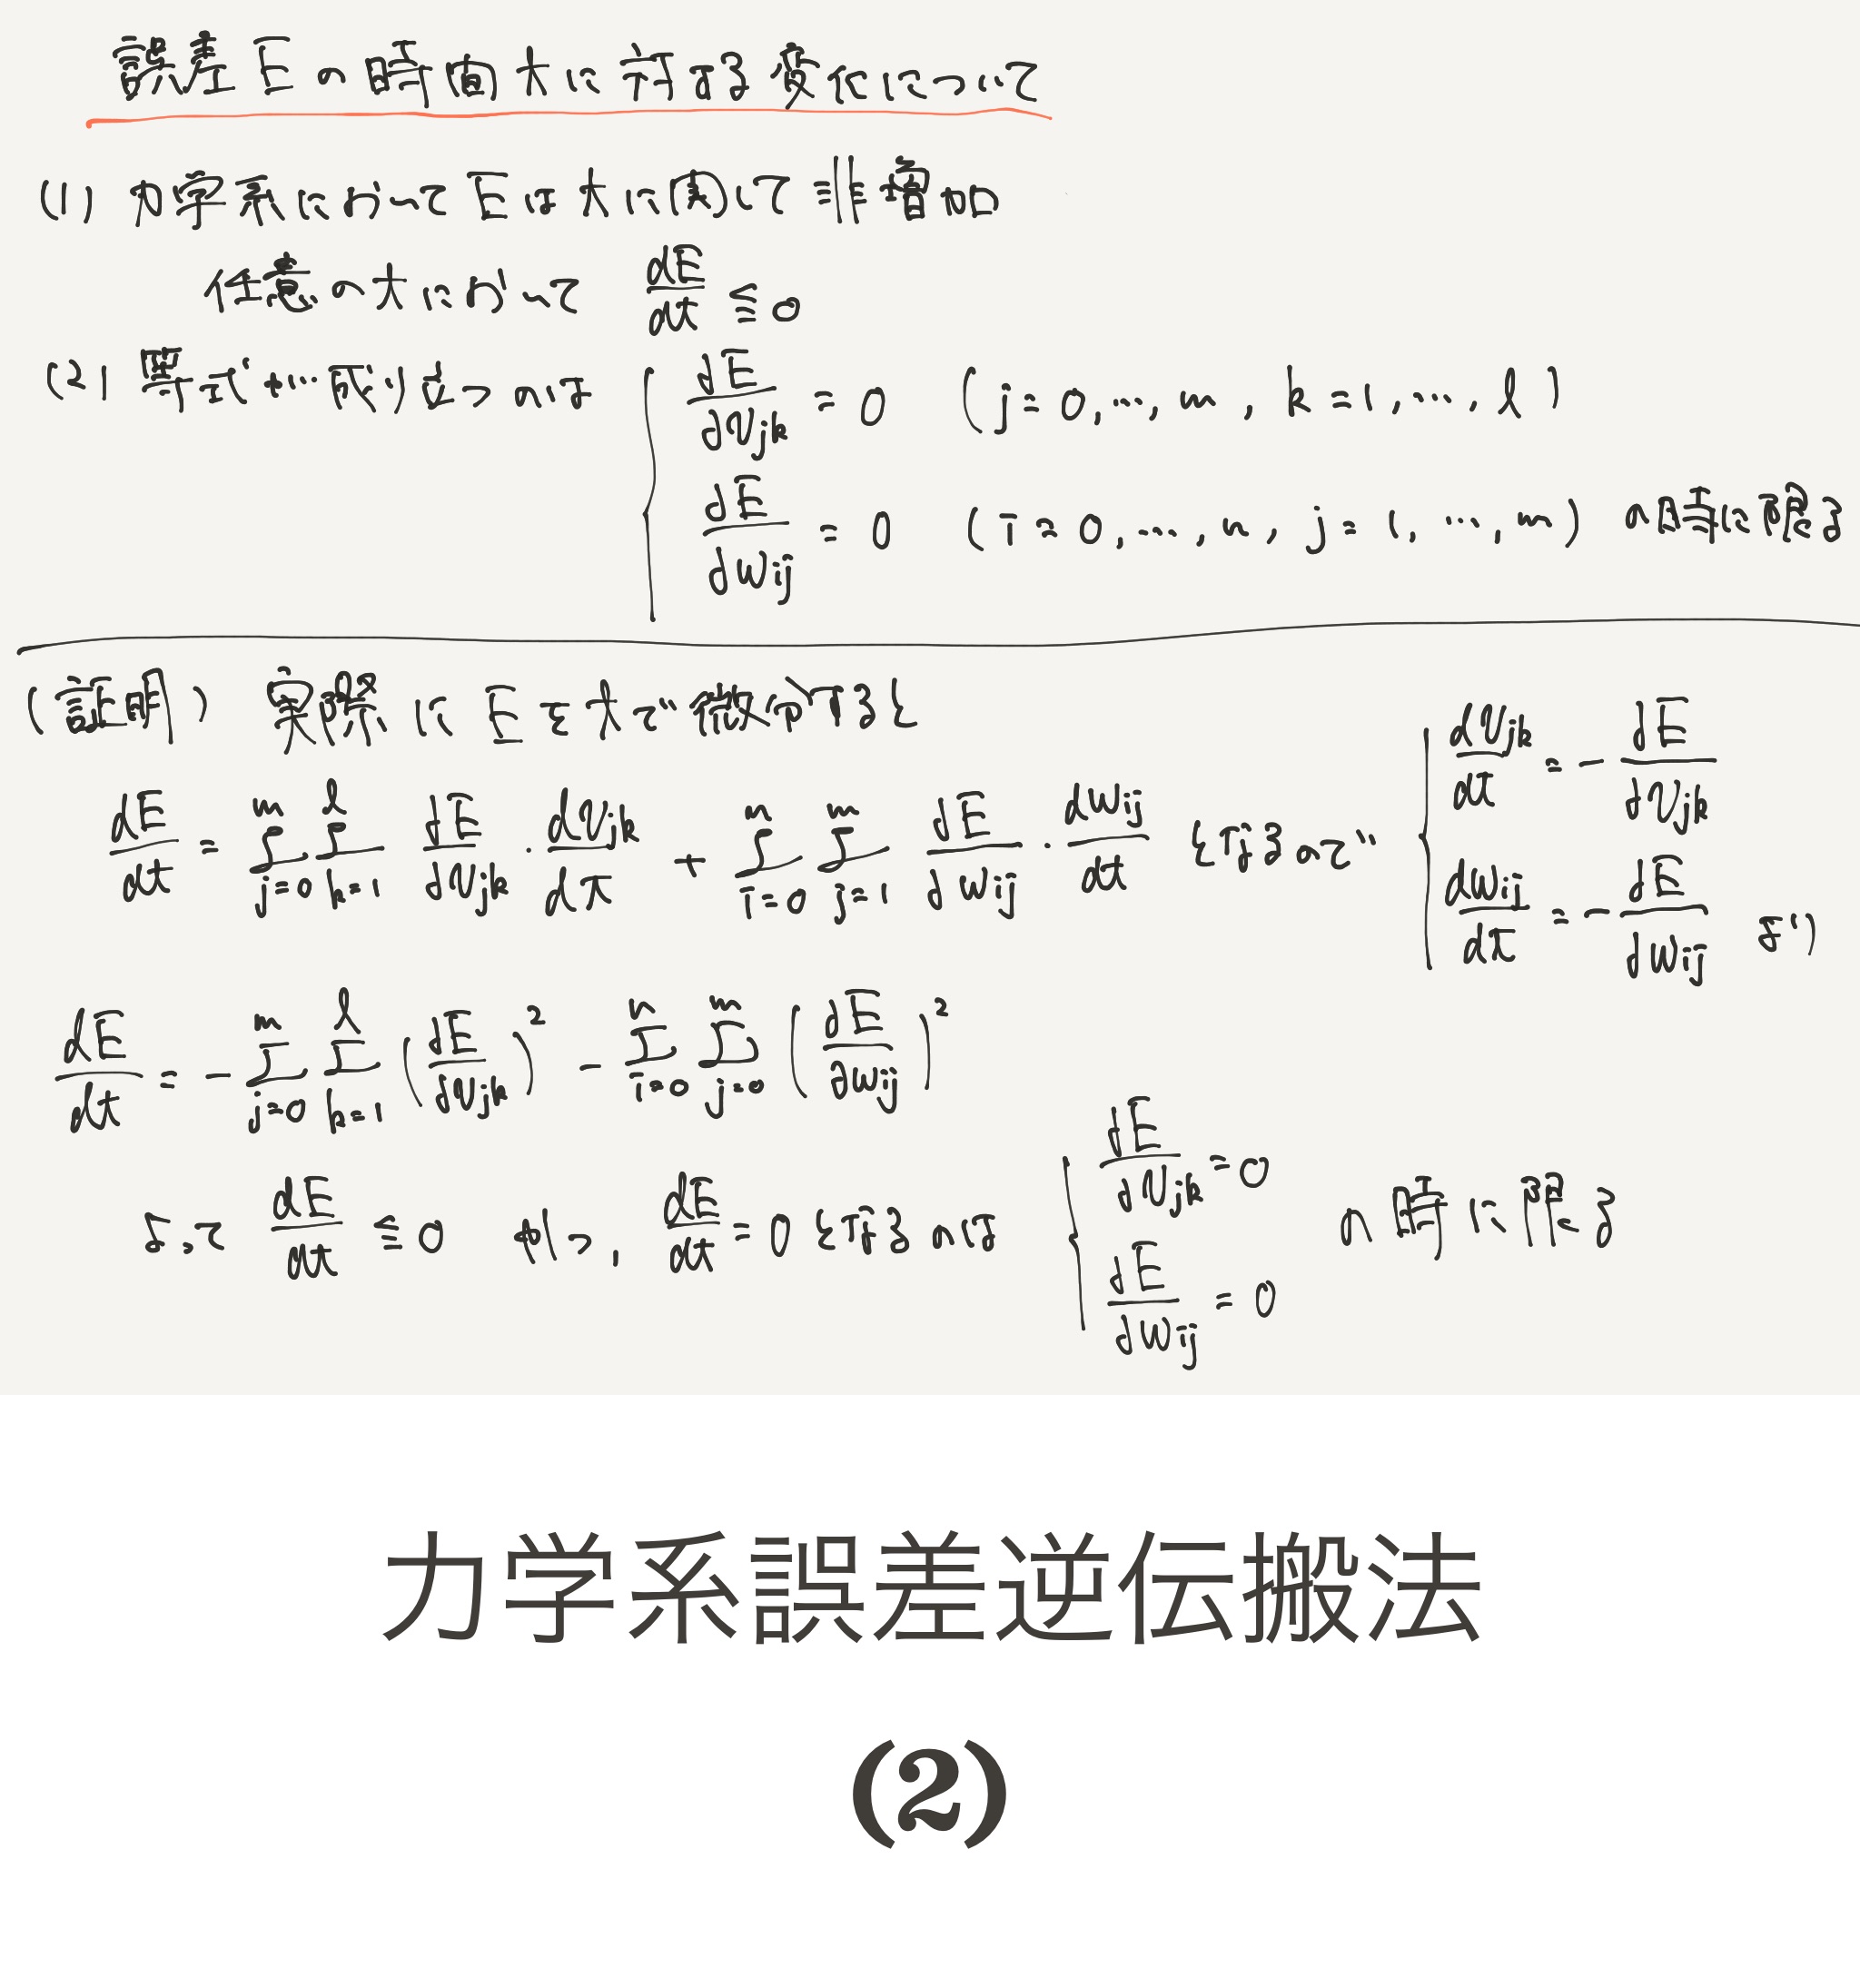 誤差Eの時間tに対する変化について
(1) 力学系においてEはtに関して非増加
任意のtにおいて dE/dt ≦ 0
(2) 等式が成り立つのは { ∂E/∂Vjk = 0 (j=0,…,m, k=1,…,l)
∂E/∂Wij = 0 (i=0,…,n, j=1,…,m) の時に限る
(証明) 実際にEをtで微分すると
dE/dt = Σ_{j=0}^{m} Σ_{k=1}^{l} ∂E/∂Vjk · dVjk/dt + Σ_{i=0}^{n} Σ_{j=1}^{m} ∂E/∂Wij · dWij/dt となるので { dVjk/dt = - ∂E/∂Vjk
dWij/dt = - ∂E/∂Wij より
dE/dt = - Σ_{j=0}^{m} Σ_{k=1}^{l} (∂E/∂Vjk)² - Σ_{i=0}^{n} Σ_{j=0}^{m} (∂E/∂Wij)²
よって dE/dt ≦ 0 かつ, dE/dt = 0 となるのは { ∂E/∂Vjk = 0
∂E/∂Wij = 0 の時に限る
力学系誤差逆伝搬法
(2)